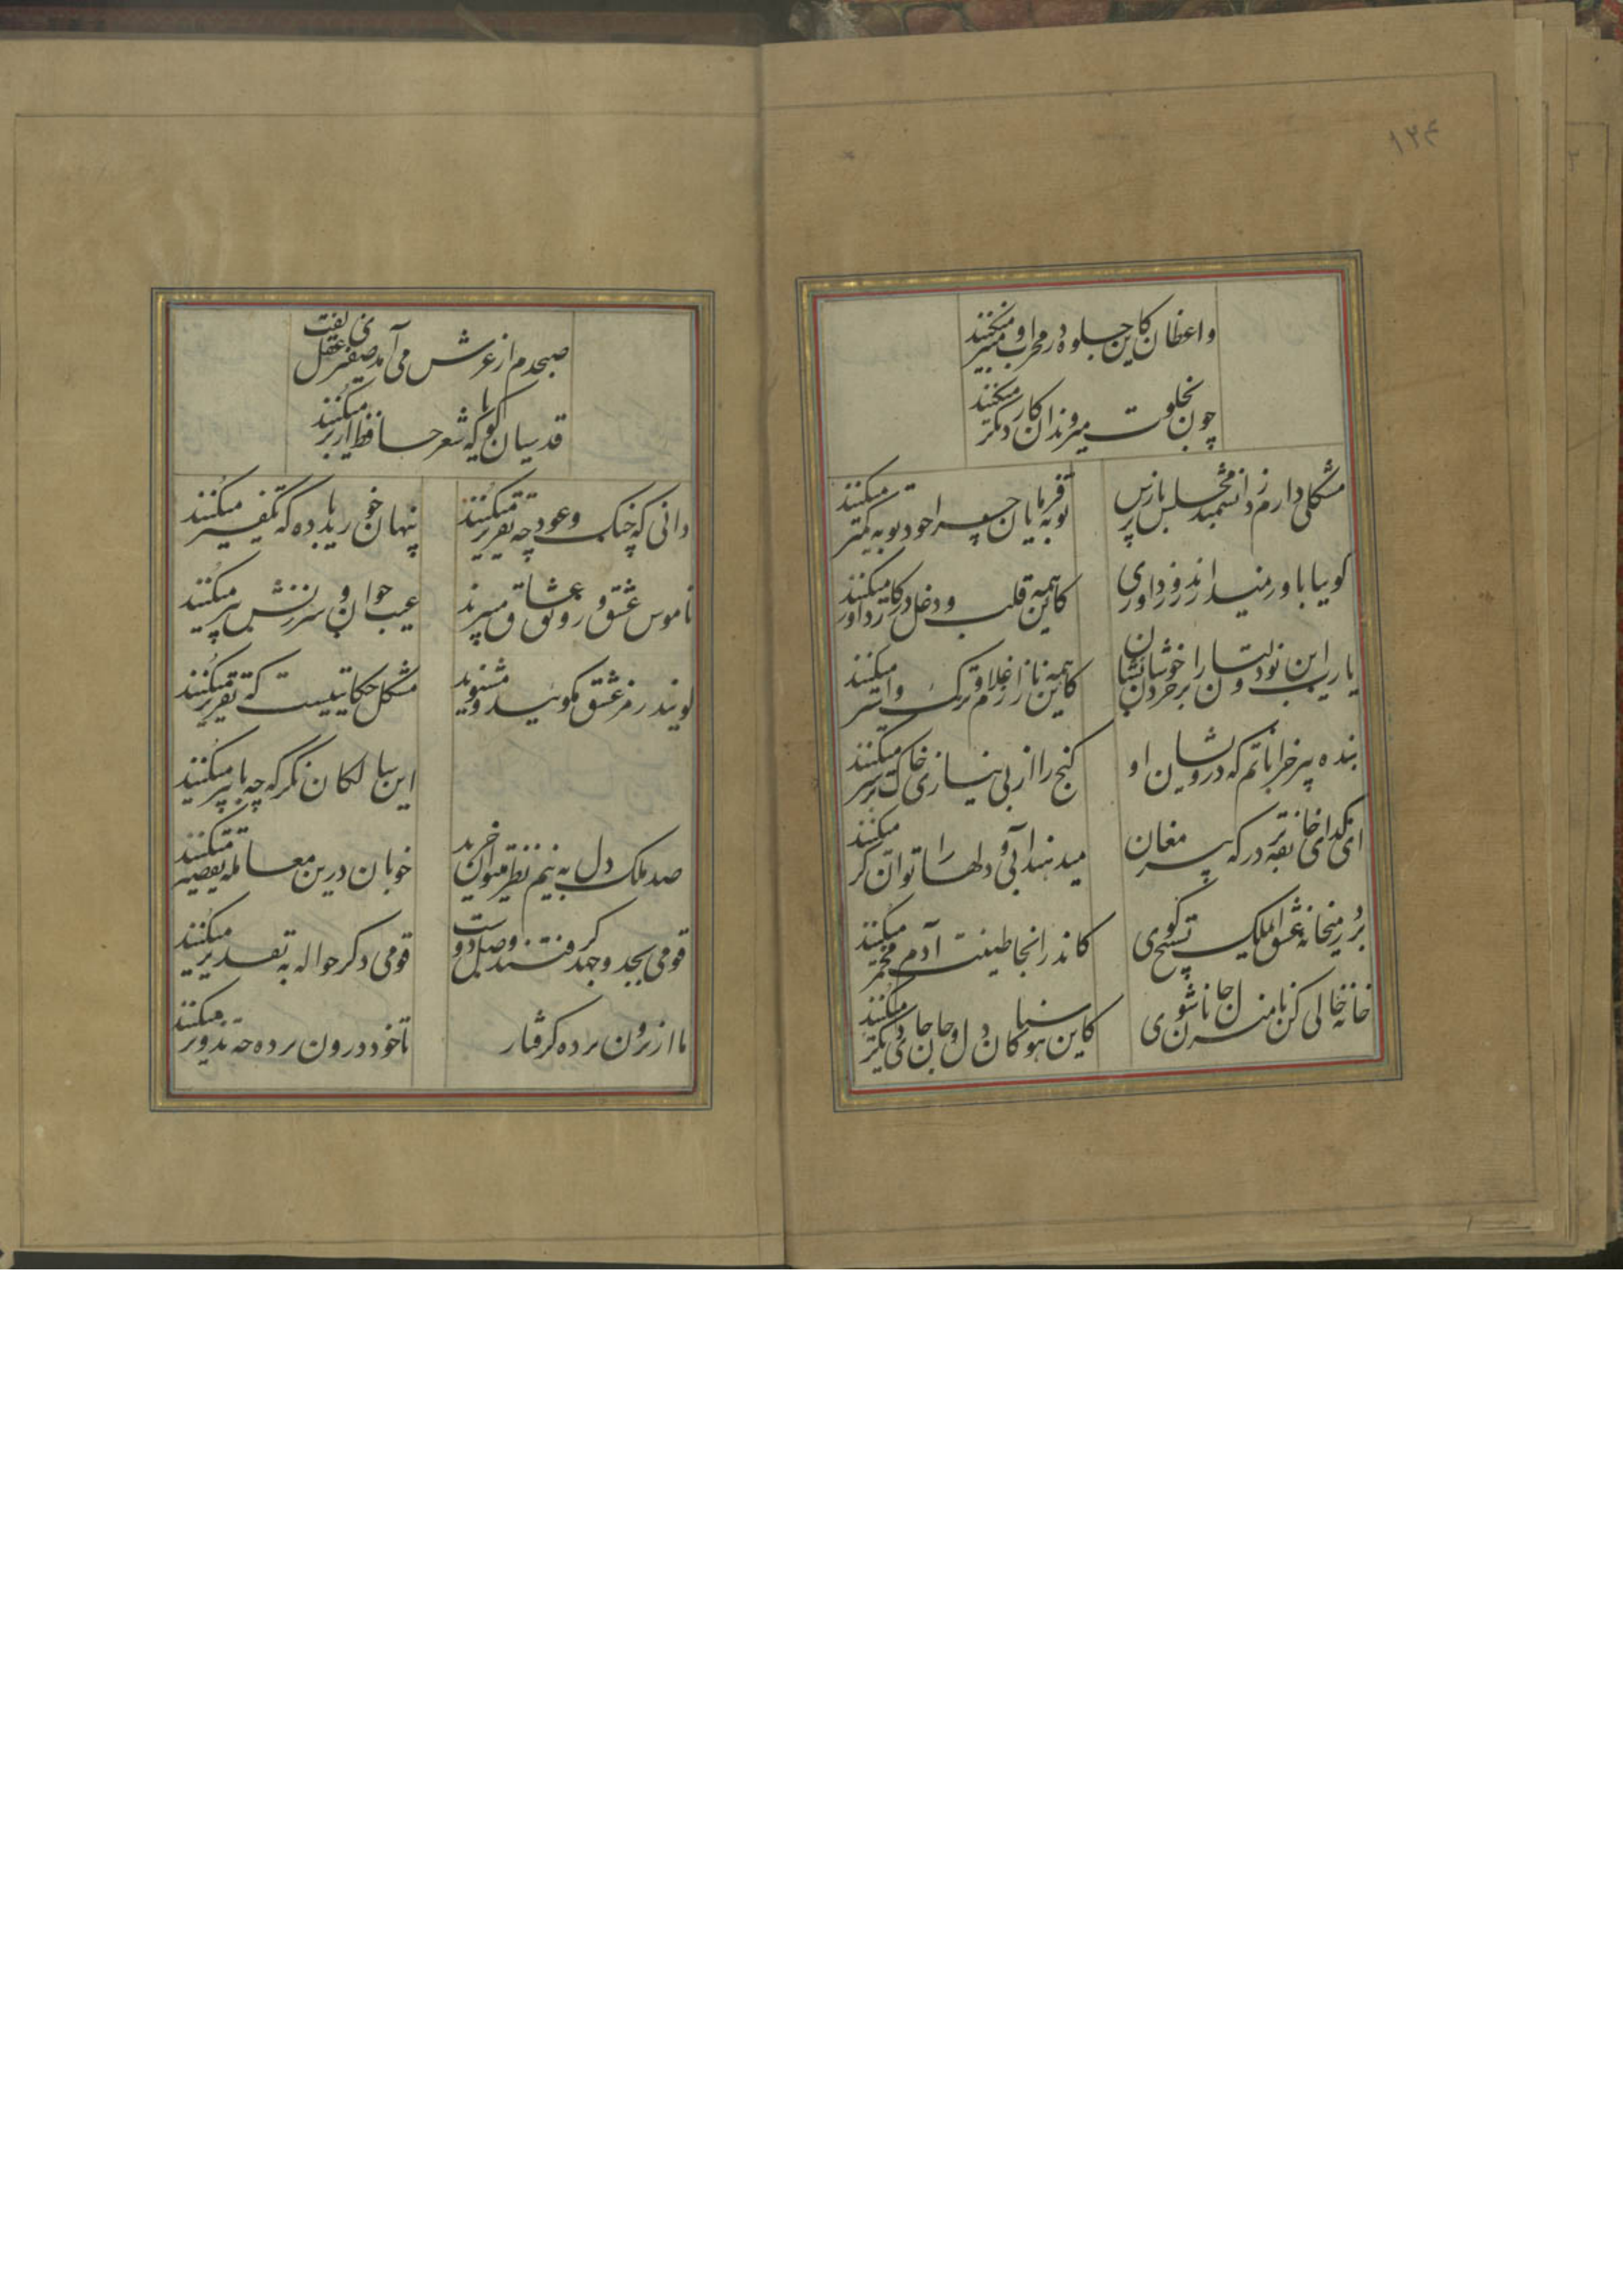 ۱۲۴
واعظان کاین جلوه در محراب و منبر میکنند
چون بخلوت میروند آن کار دیگر میکنند
مشکلی دارم ز دانشمند مجلس بازپرس
توبه فرمایان چرا خود توبه کمتر میکنند
گوییا باور نمیدارند روز داوری
کاین همه قلب و دغل در کار داور میکنند
یارب این نودولتان را بر خر خودشان نشان
کاین همه ناز از غلام ترک و استر میکنند
بنده پیر خراباتم که درویشان او
گنج را از بی نیازی خاک بر سر میکنند
ای گدای خانقه درگه پیر مغان
میدهند آبی و دلها را توانگر میکنند
بر در میخانه عشق ای ملک تسبیح گوی
کاندر انجا طینت آدم مخمر میکنند
خانه خالی کن تا منزل جانان شوی
کاین هوسناکان دل و جان جای دیگر میکنند
صبحدم از عرش می آمد صفیری عقل گفت
قدسیان گویی که شعر حافظ از بر میکنند
دانی که چنگ و عود چه تقریر میکنند
پنهان خورید باده که تکفیر میکنند
ناموس عشق و رونق عشاق میبرند
عیب جوان و سرزنش پیر میکنند
گویند رمز عشق مگویید و مشنوید
مشکل حکایتیست که تقریر میکنند
این سالکان نگر که چه با پیر میکنند
صد ملک دل به نیم نظر میتوان خرید
خوبان درین معامله تقصیر میکنند
قومی بجد و جهد گرفتند وصل دوست
قومی دگر حواله به تقدیر میکنند
ما از برون پرده گرفتار
تا خود درون پرده چه تدویر میکنند